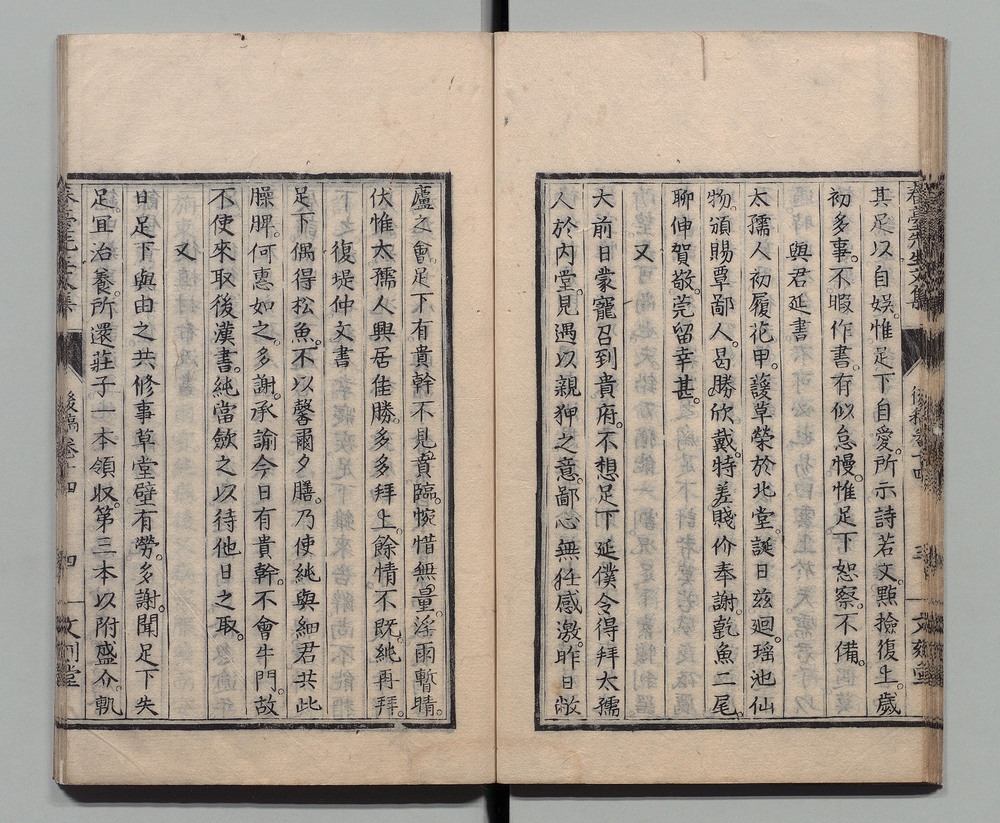 其足以自娛。惟足下自愛。所示詩若文。點撿復上。歲
初多事。不暇作書。有似怠慢。惟足下恕察。不備。
與君延書
太孺人初履花甲。護草榮於北堂。誕日玆廻。瑤池仙
物。頒賜覃鄙人。曷勝欣戴。特差賤价奉謝。乾魚二尾。
聊伸賀敬。莞留幸甚。
又
大前日蒙寵召到貴府。不想足下。延僕令得拜太孺
人於內堂。見遇以親狎之意。鄙心無任感激。昨日敝
廬之會。足下有貴幹不見賁臨。惋惜無量。淫雨暫晴。
伏惟太孺人興居佳勝。多多拜上。餘情不既。純再拜。
復堤仲文書
足下偶得松魚。不以馨爾夕膳。乃使純與細君共此
臊脾。何惠如之。多謝。承諭今日有貴幹。不會牛門。故
不使來取後漢書。純當斂之以待他日之取。
又
日足下與由之共修事草堂壁有勞。多謝。聞足下失
足。宜治養。所還莊子一本領収。第三本以附盛介。軌
春臺先生文集
後稿卷十四
四